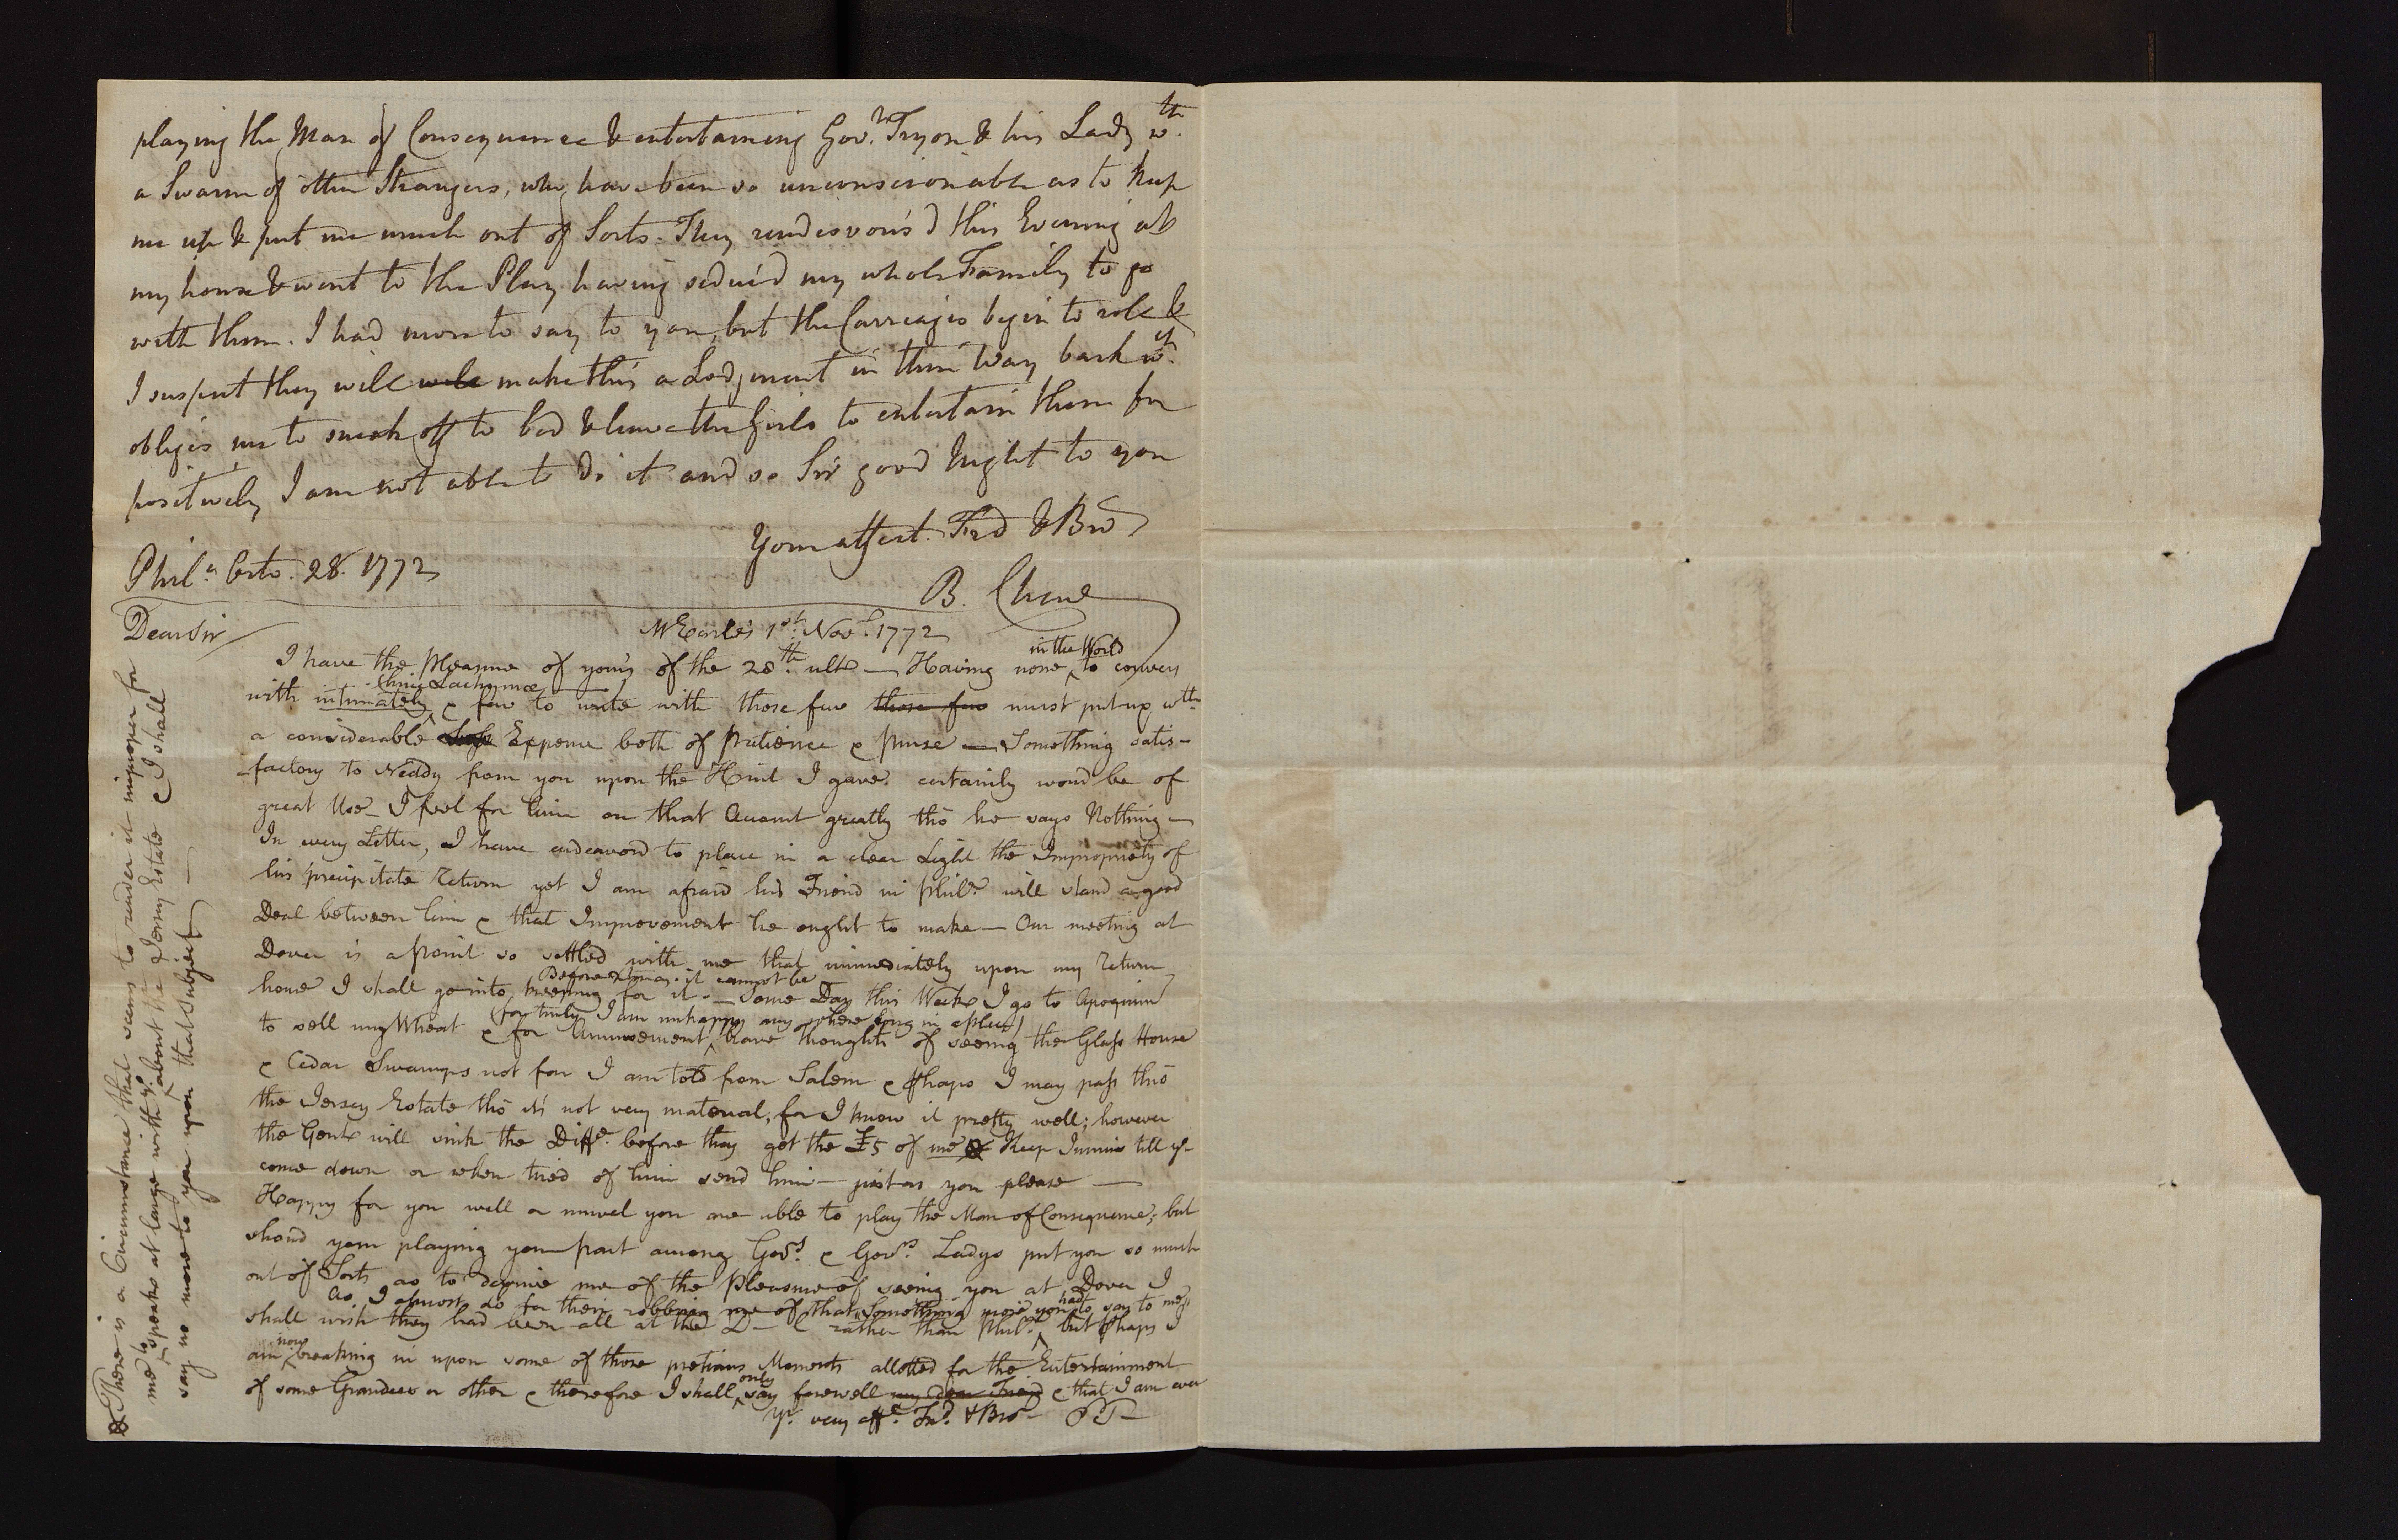 playing the Man of Consequence & entertaining Gov.r Tryon & his Lady wth.
a Swarm of other Strangers, who have been so unconscionable as to keep
me up & put me much out of Sorts. They rendesvous'd this Evening at
my house & went to the Play having seduc'd my whole Family to go
with them. I had more to say to you, but the Carriages begin to role &
I suspect they will will make this a Lodgment in their Way back wch.
obliges me to sneak off to bed & leave the Girls to entertain them for
positively I am not able to do it and so Sir good Night to you
Your affect. Frd & Bro
B. Chew
Phila. Octo. 28. 1772
Dear Sir
Mr Earle's 1st. Novr. 1772
I have the Pleasure of yours of the 28th. ulto — Having none in the World to convers
with intimately hinc Lachrymæ & few to write with those few those few must put up wth
a considerable Expence both of Patience & Purse — Something satis-
factory to Neddy from you upon the Hint I gave certainly wou'd be of
great Use — I feel for him on that Account greatly tho he says Nothing —
In every Letter, I have endeavord to place in a clear Light the Impropriety of
his precipitate Return yet I am afraid his Friend in Phila. will stand a good
Deal between him & that Improvement he ought to make — Our meeting at
Dover is a point so settled with me that immediately upon my Return
home I shall go into keeping for it. Before Xmas. it cannot be — Some Day this Week I go to Apoquim
to sell my Wheat & for Amusement (for truly I am unhappy any where long in a place) have thoughts of seeing the Glass House
& Cedar Swamps not far I am told from Salem & phaps I may pass thro
the Jersey Estate tho it's not very material; for I know it pretty well; however
the Gent will sink the Diffe. before they get the £5 of me Keep Jummie till y
come down or when tired of him send him — just as you please —
Happy for you well or unwel you are able to play the Man of Consequence; but
shoud your playing your part among Govrs. & Govrs. Ladys put you so much
out of Sorts as to deprive me of the Pleasure of seeing you at Dover I
shall wish as I almost do for their robbing me of that Something more you had to say to me
they had been all at the D—l rather than Phila. but phaps I
am now breaking in upon some of those pretious Moments allotted for the Entertainment
of some Grandees or other & therefore I shall only say farewell my dear Friend & that I am ever
Yr. very affe. Frd. & Bro
There is a Circumstance that seems to render it improper for
me to speake at large with yo. about the Jersey Estate & I shall
say no more to you upon that Subject —